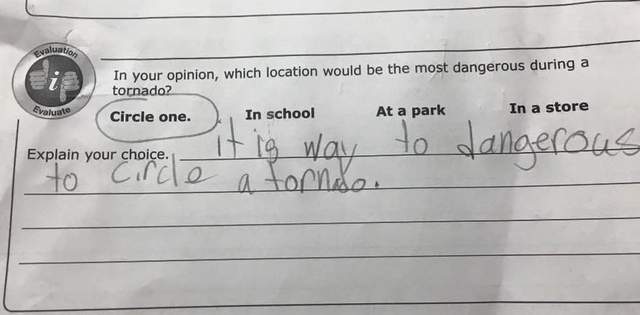 Evaluation
i
Evaluate
In your opinion, which location would be the most dangerous during a
tornado?
Circle one. In school At a park In a store
Explain your choice. it is way to dangerous
to circle a torndo.